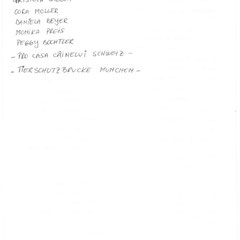 CORA MÖLLER
DANIELA BEYER
MONIKA PREIS
PEGGY BECHTLER
- PRO CASA CÂINELUI SCHWEIZ -
- TIERSCHUTZBRÜCKE MÜNCHEN -